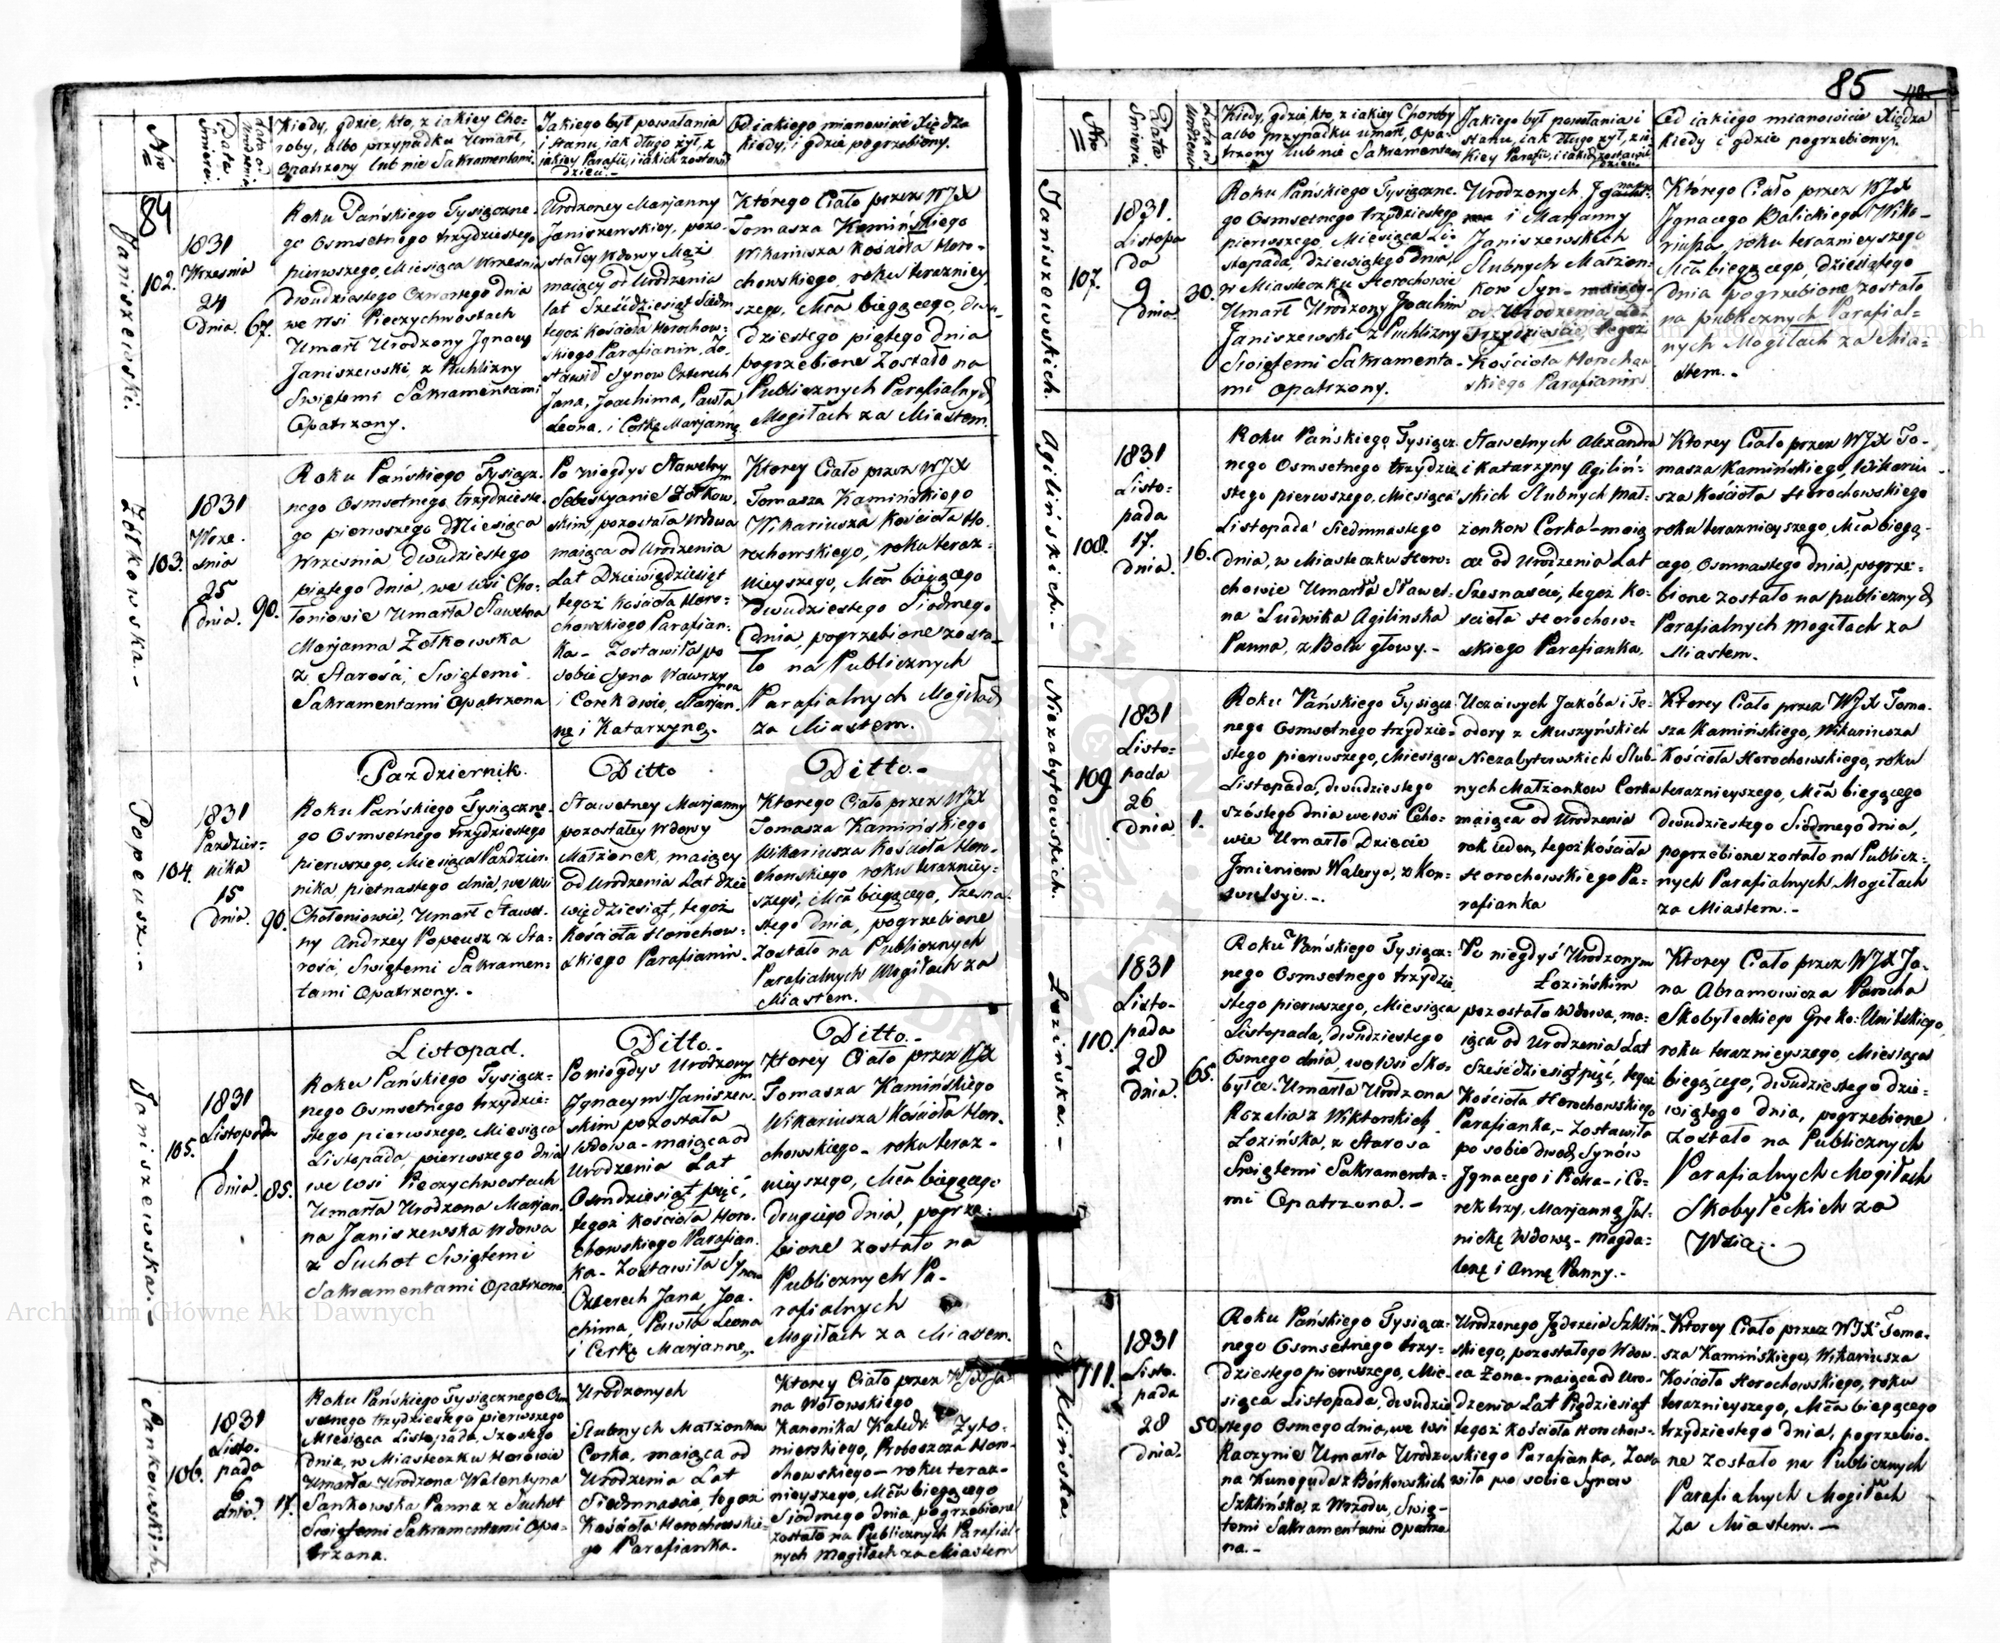 84
Nro
Data Śmierci.
Lata od Urodzenia
Kiedy, gdzie, kto, z iakiey Cho-
roby, albo przypadku Umarł,
Opatrzony lub nie Sakramentami.
Jakiego był powołania
i stanu, iak długo żył, z
iakiey Parafii, i iakich zostawił
dzieci.-
Od iakiego mianowicie Xiędza
kiedy, i gdzie pogrzebiony.
Janiszewski.
102.
1831
Września
24
dnia.
67.
Roku Pańskiego Tysiączne-
go Osmsetnego trzydziestego
pierwszego, Miesiąca Września
dwudziestego Czwartego dnia
we Wsi Pieczychwostach
Umarł Urodzony Ignacy
Janiszewski, z Puchlizny
Swiętemi Sakramentami
Opatrzony.
Urodzoney Marjanny
Janiszewskiey, pozo-
stałey Wdowy Mąż
maiący od Urodzenia
lat Sześćdziesiąt Siedm
tegoż Kościoła Horochow-
skiego Parafianin, Zo-
stawił Synow Czterech
Jana, Joachima, Pawła
Leona, i Corkę Marjannę
Którego Ciało przez WJX
Tomasza Kamińskiego
Wikariusza Kościoła Horo-
chowskiego, roku terazniey-
szego, Mca bieżącego, dwu-
dziestego piątego dnia
pogrzebione Zostało na
Publicznych Parafialnych
Mogiłach za Miastem.
Żółkowska.-
103.
1831
Wrze-
snia
25
dnia.
90.
Roku Pańskiego Tysiącz-
nego Osmsetnego trzydzieste-
go pierwszego Miesiąca
Wrzesnia dwudziestego
piątego dnia, we wsi Cho-
łoniowie Umarła Sławetna
Marjanna Żółkowska
z Starości, Swiętemi
Sakramentami Opatrzona
Po niegdys Sławetnym
Sebestyanie Żółkow-
skim, pozostała Wdowa
maiąca od Urodzenia
Lat Dziewięćdziesiąt
tegoż Kościoła Horo-
chowskiego Parafian-
ka- Zostawiła po
sobie Syna Wawrzyńca
i Corek dwie, Marjan-
nę i Katarzynę.
Ktorey Ciało przez WJX
Tomasza Kamińskiego
Wikariusza Kościoła Ho-
rochowskiego, roku teraz-
nieyszego, Mca bieżącego
dwudziestego Siódmego
dnia, pogrzebione zosta-
ło na Publicznych
Parafialnych Mogiłach
za Miastem.
Pazdziernik.
Ditto
Ditto.-
Popeusz.-
104.
1831
Pazdzier-
nika
15
dnia.
90.
Roku Pańskiego Tysiączne-
go Osmsetnego trzydziestego
pierwszego, Miesiąca Pazdzier-
nika piętnastego dnia, we wsi
Chołoniowie, Umarł Sławet-
ny Andrzey Popeusz z Sta-
rości, Swiętemi Sakramen-
tami Opatrzony.-
Sławetney Marjanny
pozostałey Wdowy
Małżonek, maiący
od Urodzenia Lat dzie-
więćdziesiąt, tegoż
Kościoła Horochow-
skiego Parafianin.
Ktorego Ciało przez WJX
Tomasza Kamińskiego
Wikariusza Kościoła Horo-
chowskiego roku terazniey-
szego, Mca bieżącego, Szesna-
stego dnia, pogrzebione
Zostało na Publicznych
Parafialnych Mogiłach za
Miastem.
Listopad.
Ditto.-
Ditto.-
Janiszewska.-
105.
1831
Listopada
1
dnia.
85.
Roku Pańskiego Tysiącz-
nego Osmsetnego trzydzie-
stego pierwszego, Miesiąca
Listopada, pierwszego dnia
we Wsi Pieczychwostach
Umarła Urodzona Marjan-
na Janiszewska Wdowa
z Suchot Swiętemi
Sakramentami Opatrzona.
Po niegdys Urodzonym
Ignacym Janiszew-
skim pozostała
Wdowa- maiąca od
Urodzenia Lat
Osmdziesiąt pięć,
tegoż Kościoła Horo-
chowskiego Parafian-
ka- Zostawiła Synow
Czterech Jana, Joa-
chima, Pawła Leona
i Corkę Marjannę.
Ktorey Ciało przez WJX
Tomasza Kamińskiego
Wikariusza Kościoła Horo-
chowskiego- roku teraz-
nieyszego, Mca bieżącego
drugiego dnia, pogrze-
bione zostało na
Publicznych Pa-
rafialnych
Mogiłach za Miastem.
Sankowskich.
106.
1831
Listo-
pada
6
dnia.
17.
Roku Pańskiego Tysiącznego Osm
setnego trzydziestego pierwszego
Miesiąca Listopada, Szostego
dnia, w Miasteczku Horowie
Umarła Urodzona Walentyna
Sankowska Panna z Suchot
Swiętemi Sakramentami Opa-
trzona.
Urodzonych
Slubnych Małżonkow
Corka, maiąca od
Urodzenia Lat
Siedmnaście, tegoż
Kościoła Horochowskie-
go Parafianka.
Ktorey Ciało przez WJX Ja-
na Wołowskiego
Kanonika Katedr: Żyto-
mierskiego, Proboszcza Horo-
chowskiego- roku teraz-
nieyszego, Mca bieżącego
Siodmego dnia pogrzebione
zostało na Publicznych Parafial-
nych Mogiłach za Miastem
85
Nro
Data Śmierci.
Lata od Urodzen:
Kiedy, gdzie, kto, z iakiey Choroby
albo przypadku umarł, Opa-
trzony lub nie Sakramentami
Jakiego był powołania i
stanu, iak długo żył, z ia-
kiey Parafii, i iakich zostawił
dzieci.
Od iakiego mianowicie Xiędza
kiedy i gdzie pogrzebiony.
Janiszewskich.
107.
1831.
Listopa
da
9
dnia
30.
Roku Pańskiego Tysiączne-
go Osmsetnego trzydziestego
pierwszego, Miesiąca Li-
stopada, dziewiątego dnia,
w Miasteczku Horochowie
Umarł Urodzony Joachim
Janiszewski z Puchlizny
Swiętemi Sakramenta-
mi opatrzony.
Urodzonych Ignacego
i Marjanny
Janiszewskich
Slubnych Małżon-
kow Syn- maiący
od Urodzenia Lat
Trzydzieście, tegoż
Kościoła Horochow
skiego Parafianin
Którego Ciało przez WJX
Ignacego Balickiego Wika-
riusza, roku terazniejszego
Mca bieżącego, dziesiątego
dnia pogrzebione zostało
na publicznych Parafial-
nych Mogiłach za Mia-
stem.-
Agilińskich.-
108.
1831
Listo-
pada
17.
dnia.
16.
Roku Pańskiego Tysiącz-
nego Osmsetnego trzydzie
stego pierwszego, Miesiąca
Listopada Siedmnastego
dnia, w Miasteczku Horo-
chowie Umarła Sławet-
na Ludwika Agilinska
Panna, z Bolu głowy.-
Sławetnych Alexandra
i Katarzyny Agiliń-
skich Slubnych Mał-
żonkow Corka- maią
ca od Urodzenia Lat
Szesnaście, tegoż Ko-
ścioła Horochow-
skiego Parafianka.
Ktorey Ciało przez WJX To-
masza Kamińskiego, Wikariu-
sza Kościoła Horochowskiego
roku terazniejszego, Mca bieżą-
cego, Osmnastego dnia, pogrze-
bione zostało na publicznych
Parafialnych Mogiłach za
Miastem.
Niezabytowskich.
109
1831
Listo-
pada
26
dnia
1.
Roku Pańskiego Tysiącz-
nego Osmsetnego trzydzie-
stego pierwszego, Miesiąca
Listopada, dwudziestego
szóstego dnia we wsi Ceho-
wie Umarło Dziecie
Imieniem Walerya, z Kon-
wulsyi.-
Uczciwych Jakóba i Te-
odory z Muszyńskich
Niezabytowskich Slub-
nych Małżonkow Corka
maiąca od Urodzenia
rok ieden, tegoż Kościoła
Horochowskiego Pa-
rafianka
Ktorey Ciało przez WJX Toma-
sza Kamińskiego, Wikariusza
Kościoła Horochowskiego, roku
terazniejszego, Mca bieżącego
dwudziestego Siódmego dnia,
pogrzebione zostało na Publicz-
nych Parafialnych Mogiłach
za Miastem.-
Łozińska.-
110.
1831
Listo-
pada
28
dnia.
65.
Roku Pańskiego Tysiącz-
nego Osmsetnego trzydzie
stego pierwszego, Miesiąca
Listopada, dwudziestego
Osmego dnia, we Wsi Sko-
byłce Umarła Urodzona
Rozalia z Wiktorskich
Łozińska, z Starosci
Swiętemi Sakramenta-
mi Opatrzona.-
Po niegdyś Urodzonym
Łozińskim
pozostała Wdowa, ma-
iąca od Urodzenia Lat
Sześćdziesiąt pięć, tegoż
Kościoła Horochowskiego
Parafianka,- Zostawiła
po sobie dwóch Synów
Ignacego i Roka- i Co-
rek trzy, Marjannę Ja-
nickę Wdowę- Magda-
lenę i Annę Panny.-
Ktorey Ciało przez WJX Ja-
na Abramowicza Parocha
Skobyłeckiego Greko: Unitskiego,
roku terazniejszego, Miesiąca
bieżącego, dwudziestego dzie-
wiątego dnia, pogrzebione
Zostało na Publicznych
Parafialnych Mogiłach
Skobyłeckich za
Wsią.
Szklińska.-
111.
1831
Listo-
pada
28
dnia.
50
Roku Pańskiego Tysiącz-
nego Osmsetnego trzy-
dziestego pierwszego, Mie-
siąca Listopada, dwudzie
stego Osmego dnia, we Wsi
Raczynie Umarła Urodzo
na Kunegunda z Borkowskich
Szklińska, z Wrzodu, Swię-
temi Sakramentami Opatrzo
na.-
Urodzonego Jędrzeia Szkliń-
skiego, pozostałego Wdow-
ca Żona- maiąca od Uro-
dzenia Lat Pięćdziesiąt
tegoż Kościoła Horochow-
skiego Parafianka, Zosta
wiła po sobie Synow
Ktorey Ciało przez WJX Toma-
sza Kamińskiego, Wikariusza
Kościoła Horochowskiego, roku
terazniejszego, Mca bieżącego
trzydziestego dnia, pogrzebio-
ne Zostało na Publicznych
Parafialnych Mogiłach
za Miastem.-
Archiwum Główne Akt Dawnych
Archiwum Główne Akt Dawnych